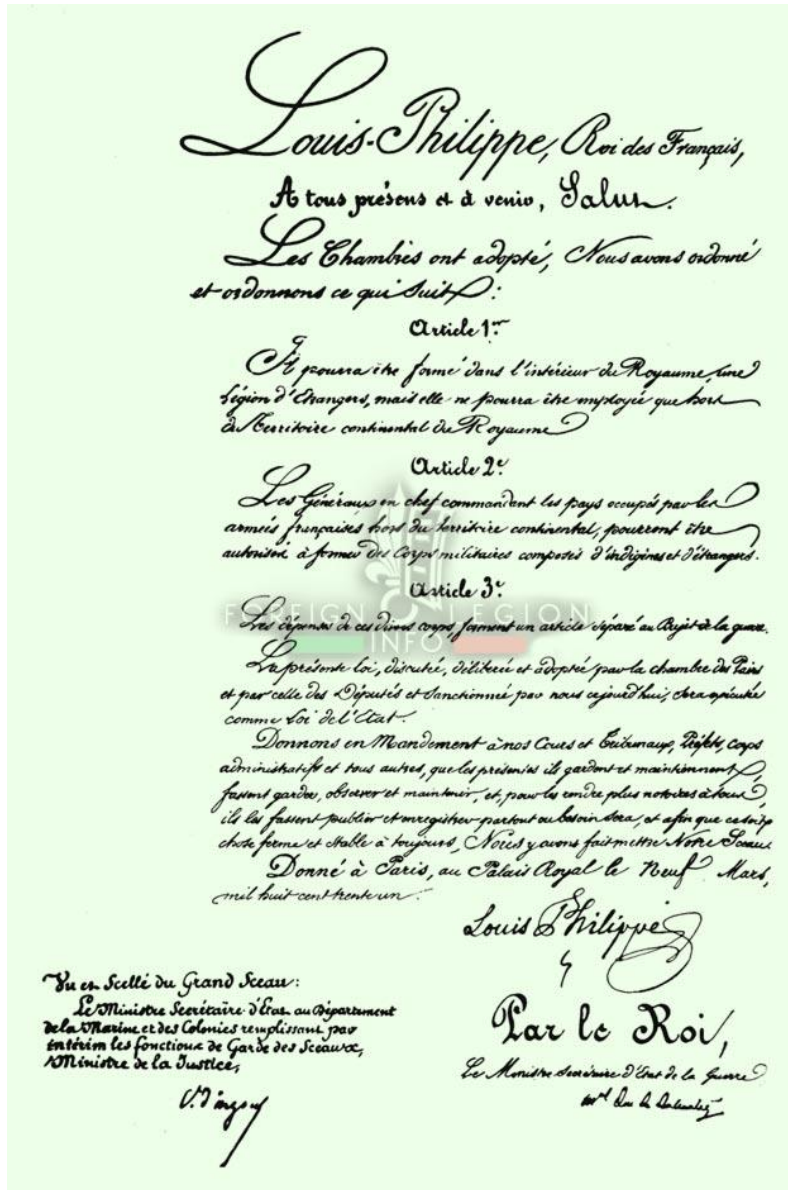 Louis-Philippe, Roi des Français,
A tous présens et à venir, Salut.
Les Chambres ont adopté, Nous avons ordonné
et ordonnons ce qui suit :
Article 1er
Il pourra être formé dans l'intérieur du Royaume, une
Légion d'Etrangers, mais elle ne pourra être employée que hors
du Territoire continental du Royaume
Article 2e
Les Généraux en chef commandant les pays occupés par les
armées françaises hors du territoire continental, pourront être
autorisés à former des Corps militaires composés d'indigènes et d'étrangers.
Article 3e
FOREIGN LEGION
INFO
Les dépenses de ces divers corps, forment un article séparé au Budjet de la guerre.
La présente loi, discutée, délibérée et adoptée par la chambre des Pairs
et par celle des Députés et Sanctionnée par nous cejourd'hui, sera exécutée
comme Loi de l'Etat.
Donnons en Mandement à nos Cours et Tribunaux, Préfets, Corps
administratifs et tous autres, que les présentes ils gardent et maintiennent,
fassent garder, observer et maintenir, et, pour les rendre plus notoires à tous,
ils les fassent publier et enregistrer partout ou besoin sera, et afin que ce soit
chose ferme et stable à toujours, Nous y avons fait mettre Notre Sceau.
Donné à Paris, au Palais Royal le Neuf Mars,
mil huit cent trente un.
Louis Philippe
Vu et Scellé du Grand Sceau :
Le Ministre Secrétaire d'Etat au Département
de la Marine et des Colonies remplissant par
intérim les fonctions de Garde des Sceaux,
Ministre de la Justice,
Par le Roi,
Le Ministre Secrétaire d'Etat de la Guerre